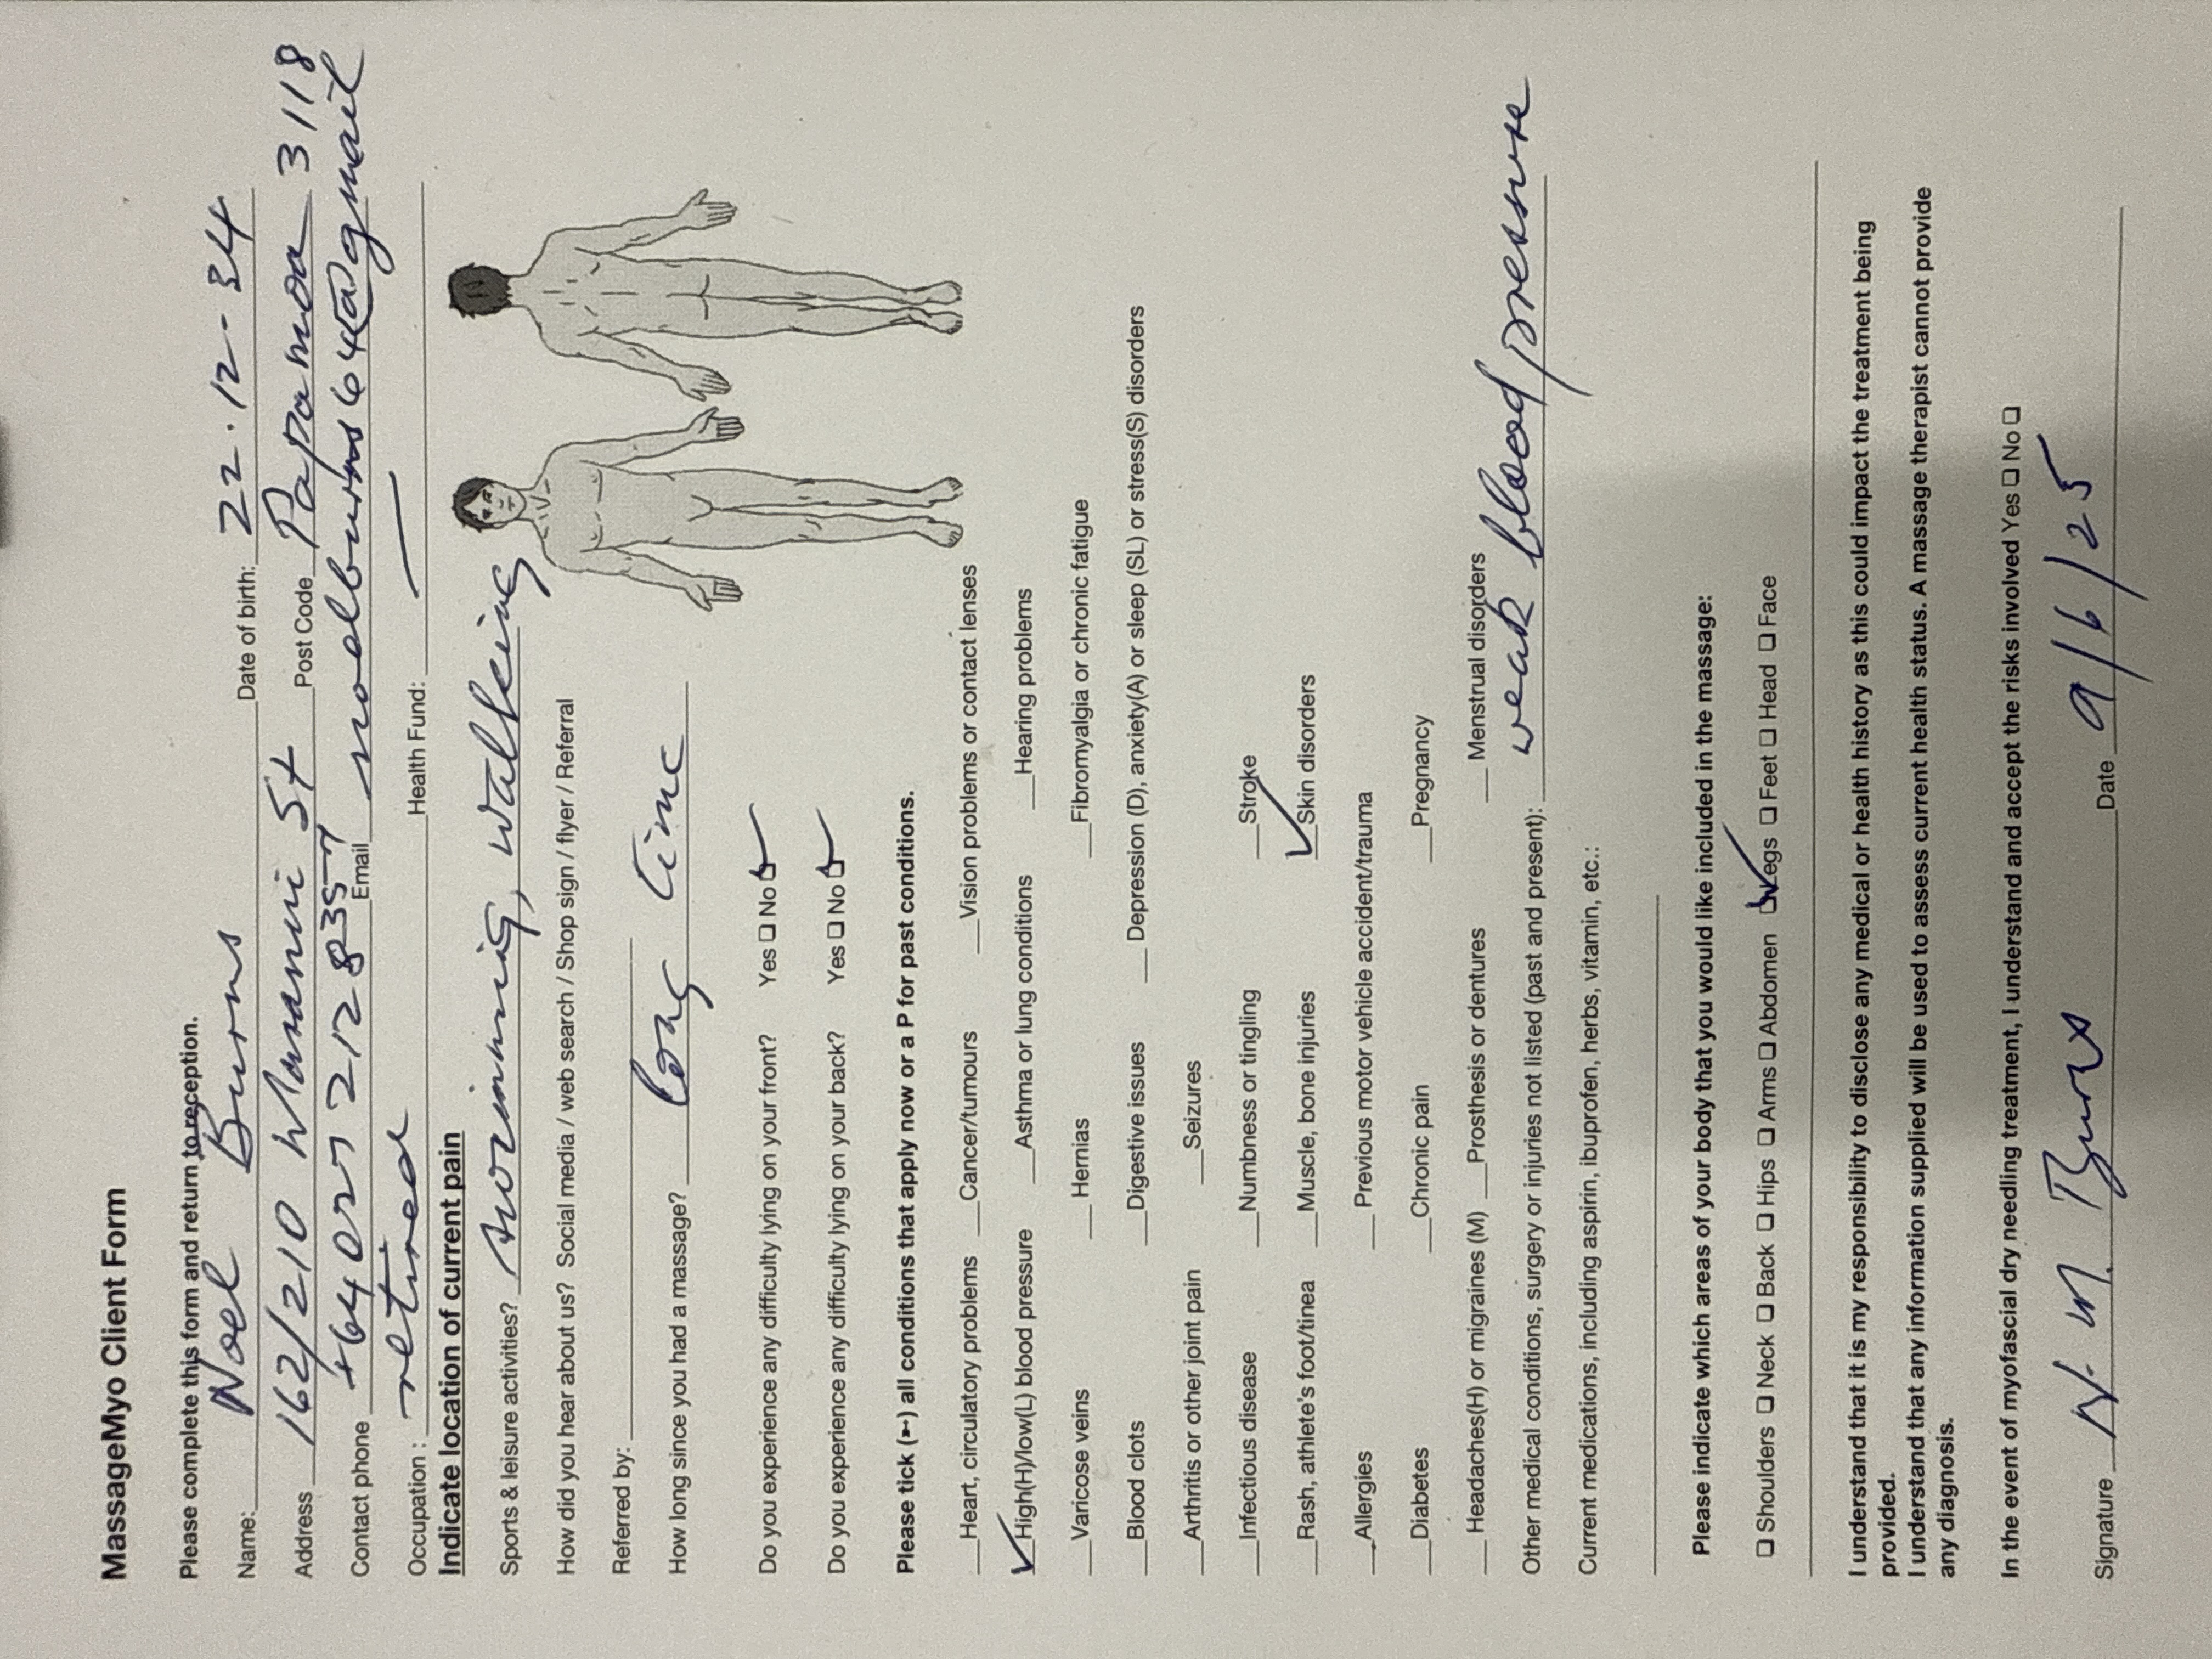 MassageMyo Client Form
Please complete this form and return to reception.
Name: Noel Burns Date of birth: 22.12-34
Address 162/210 St Post Code Papamoa 3118
Contact phone +64 0277 2128357 Email noelburns64@gmail
Occupation : retired Health Fund: —
Indicate location of current pain
Sports & leisure activities? swimming, walking
How did you hear about us? Social media / web search / Shop sign / flyer / Referral
Referred by:
How long since you had a massage? long time
Do you experience any difficulty lying on your front? Yes ☐ No ☑
Do you experience any difficulty lying on your back? Yes ☐ No ☑
Please tick (➸) all conditions that apply now or a P for past conditions.
__Heart, circulatory problems __Cancer/tumours __Vision problems or contact lenses
✓High(H)/low(L) blood pressure __Asthma or lung conditions __Hearing problems
__Varicose veins __Hernias __Fibromyalgia or chronic fatigue
__Blood clots __Digestive issues __Depression (D), anxiety(A) or sleep (SL) or stress(S) disorders
__Arthritis or other joint pain __Seizures
__Infectious disease __Numbness or tingling __Stroke
__Rash, athlete's foot/tinea __Muscle, bone injuries ✓Skin disorders
__Allergies __Previous motor vehicle accident/trauma
__Diabetes __Chronic pain __Pregnancy
__Headaches(H) or migraines (M) __Prosthesis or dentures __Menstrual disorders
Other medical conditions, surgery or injuries not listed (past and present): weak blood pressure
Current medications, including aspirin, ibuprofen, herbs, vitamin, etc.:
Please indicate which areas of your body that you would like included in the massage:
☐ Shoulders ☐ Neck ☐ Back ☐ Hips ☐ Arms ☐ Abdomen ☑ Legs ☐ Feet ☐ Head ☐ Face
I understand that it is my responsibility to disclose any medical or health history as this could impact the treatment being
provided.
I understand that any information supplied will be used to assess current health status. A massage therapist cannot provide
any diagnosis.
In the event of myofascial dry needling treatment, I understand and accept the risks involved Yes ☐ No ☐
Signature N. M. Burns Date 9/6/25